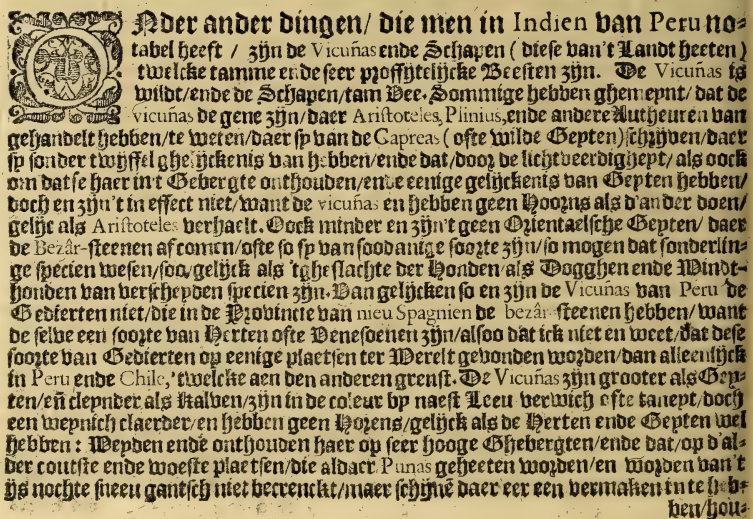 Onder ander dingen/ die men in Indien van Peru no=
tabel heeft / zijn de Vicuñas ende Schapen ( diese van't Landt heeten )
twelcke tamme ende seer proffijtelijcke Beesten zijn. De Vicuñas is
wildt/ende de Schapen/tam Vee. Sommige hebben ghemeynt/ dat de
vicuñas de gene zijn/daer Aristoteles, Plinius, ende andere Autheuren van
gehandelt hebben/te weten/daer sy van de Capreas ( ofte wilde Geyten) schrijven/daer
sy sonder twijffel ghelijckenis van hebben/ende dat/door de lichtveerdigheyt/ als oock
om datse haer in't Gebergte onthouden/ende eenige gelijckenis van Geyten hebben/
doch en zijn't in effect niet/want de vicuñas en hebben geen Hoorns als d'ander doen/
gelijc als Aristoteles verhaelt. Oock minder en zijn't geen Orientaelsche Geyten/ daer
de Bezâr-steenen af comen/ofte so sy van soodanige soorte zijn/so mogen dat sonderlin=
ge specien wesen/soo/gelijck als 'tgheslachte der Honden/als Dogghen ende Windt=
honden van verscheyden specien zijn. Van gelijcken so en zijn de Vicuñas van Peru de
Gedierten niet/die in de Provincie van nieu Spagnien de bezâr-steenen hebben/ want
de selve een soorte van Herten ofte Venesoenen zijn/alsoo dat ick niet en weet/dat dese
soorte van Gedierten op eenige plaetsen ter Werelt gevonden worden/dan alleenlijck
in Peru ende Chile, 'twelcke aen den anderen grenst. De Vicuñas zijn grooter als Gey=
ten/eñ cleynder als Kalven/zijn in de coleur by naest Leeu verwich ofte taneyt/doch
een weynich claerder/en hebben geen Horens/gelijck als de Herten ende Geyten wel
hebben : Weyden ende onthouden haer op seer hooge Ghebergten/ende dat/op d'al=
der coutste ende woeste plaetsen/die aldaer Punas geheeten worden/en worden van't
ijs nochte sneeu gantsch niet becrenckt/maer schijnē daer eer een vermaken in te heb=
ben/hou=